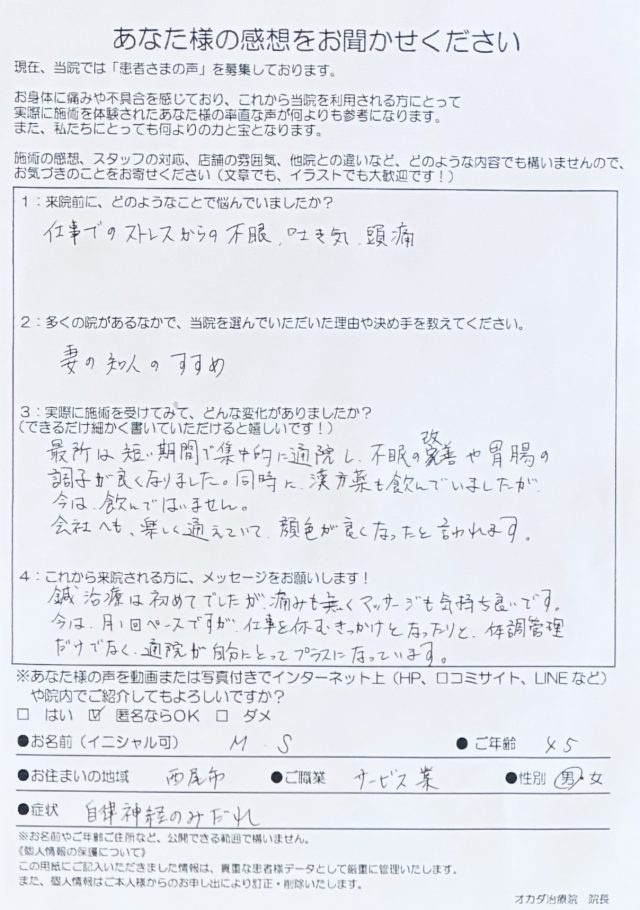 あなた様の感想をお聞かせください
現在、当院では「患者さまの声」を募集しております。
お身体に痛みや不具合を感じており、これから当院を利用される方にとって
実際に施術を体験されたあなた様の率直な声が何よりも参考になります。
また、私たちにとっても何よりの力と宝となります。
施術の感想、スタッフの対応、店舗の雰囲気、他院との違いなど、どのような内容でも構いませんので、
お気づきのことをお寄せください(文章でも、イラストでも大歓迎です!)
1:来院前に、どのようなことで悩んでいましたか?
仕事でのストレスからの不眠、吐き気、頭痛
2:多くの院があるなかで、当院を選んでいただいた理由や決め手を教えてください。
妻の知人のすすめ
3:実際に施術を受けてみて、どんな変化がありましたか?
(できるだけ細かく書いていただけると嬉しいです!)
最所は短い期間で集中的に通院し、不眠の改善や胃腸の
調子が良くなりました。同時に、漢方薬も飲んでいましたが、
今は、飲んではいません。
会社へも、楽しく通えていて、顔色が良くなったと言われます。
4:これから来院される方に、メッセージをお願いします!
鍼治療は初めてでしたが、痛みも無くマッサージも気持ち良いです。
今は、月1回ペースですが、仕事を休むきっかけとなったりと、体調管理
だけでなく、通院が自分にとってプラスになっています。
※あなた様の声を動画または写真付きでインターネット上(HP、口コミサイト、LINEなど)
や院内でご紹介してもよろしいですか?
□ はい ☑ 匿名ならOK □ ダメ
●お名前(イニシャル可) M.S ●ご年齢 45
●お住まいの地域 西尾市 ●ご職業 サービス業 ●性別 男・女
●症状 自律神経のみだれ
※お名前やご年齢ご住所など、公開できる範囲で構いません。
《個人情報の保護について》
この用紙にご記入いただきました情報は、貴重な患者様データとして厳重に管理いたします。
また、個人情報はご本人様からのお申し出により訂正・削除いたします。
オカダ治療院 院長